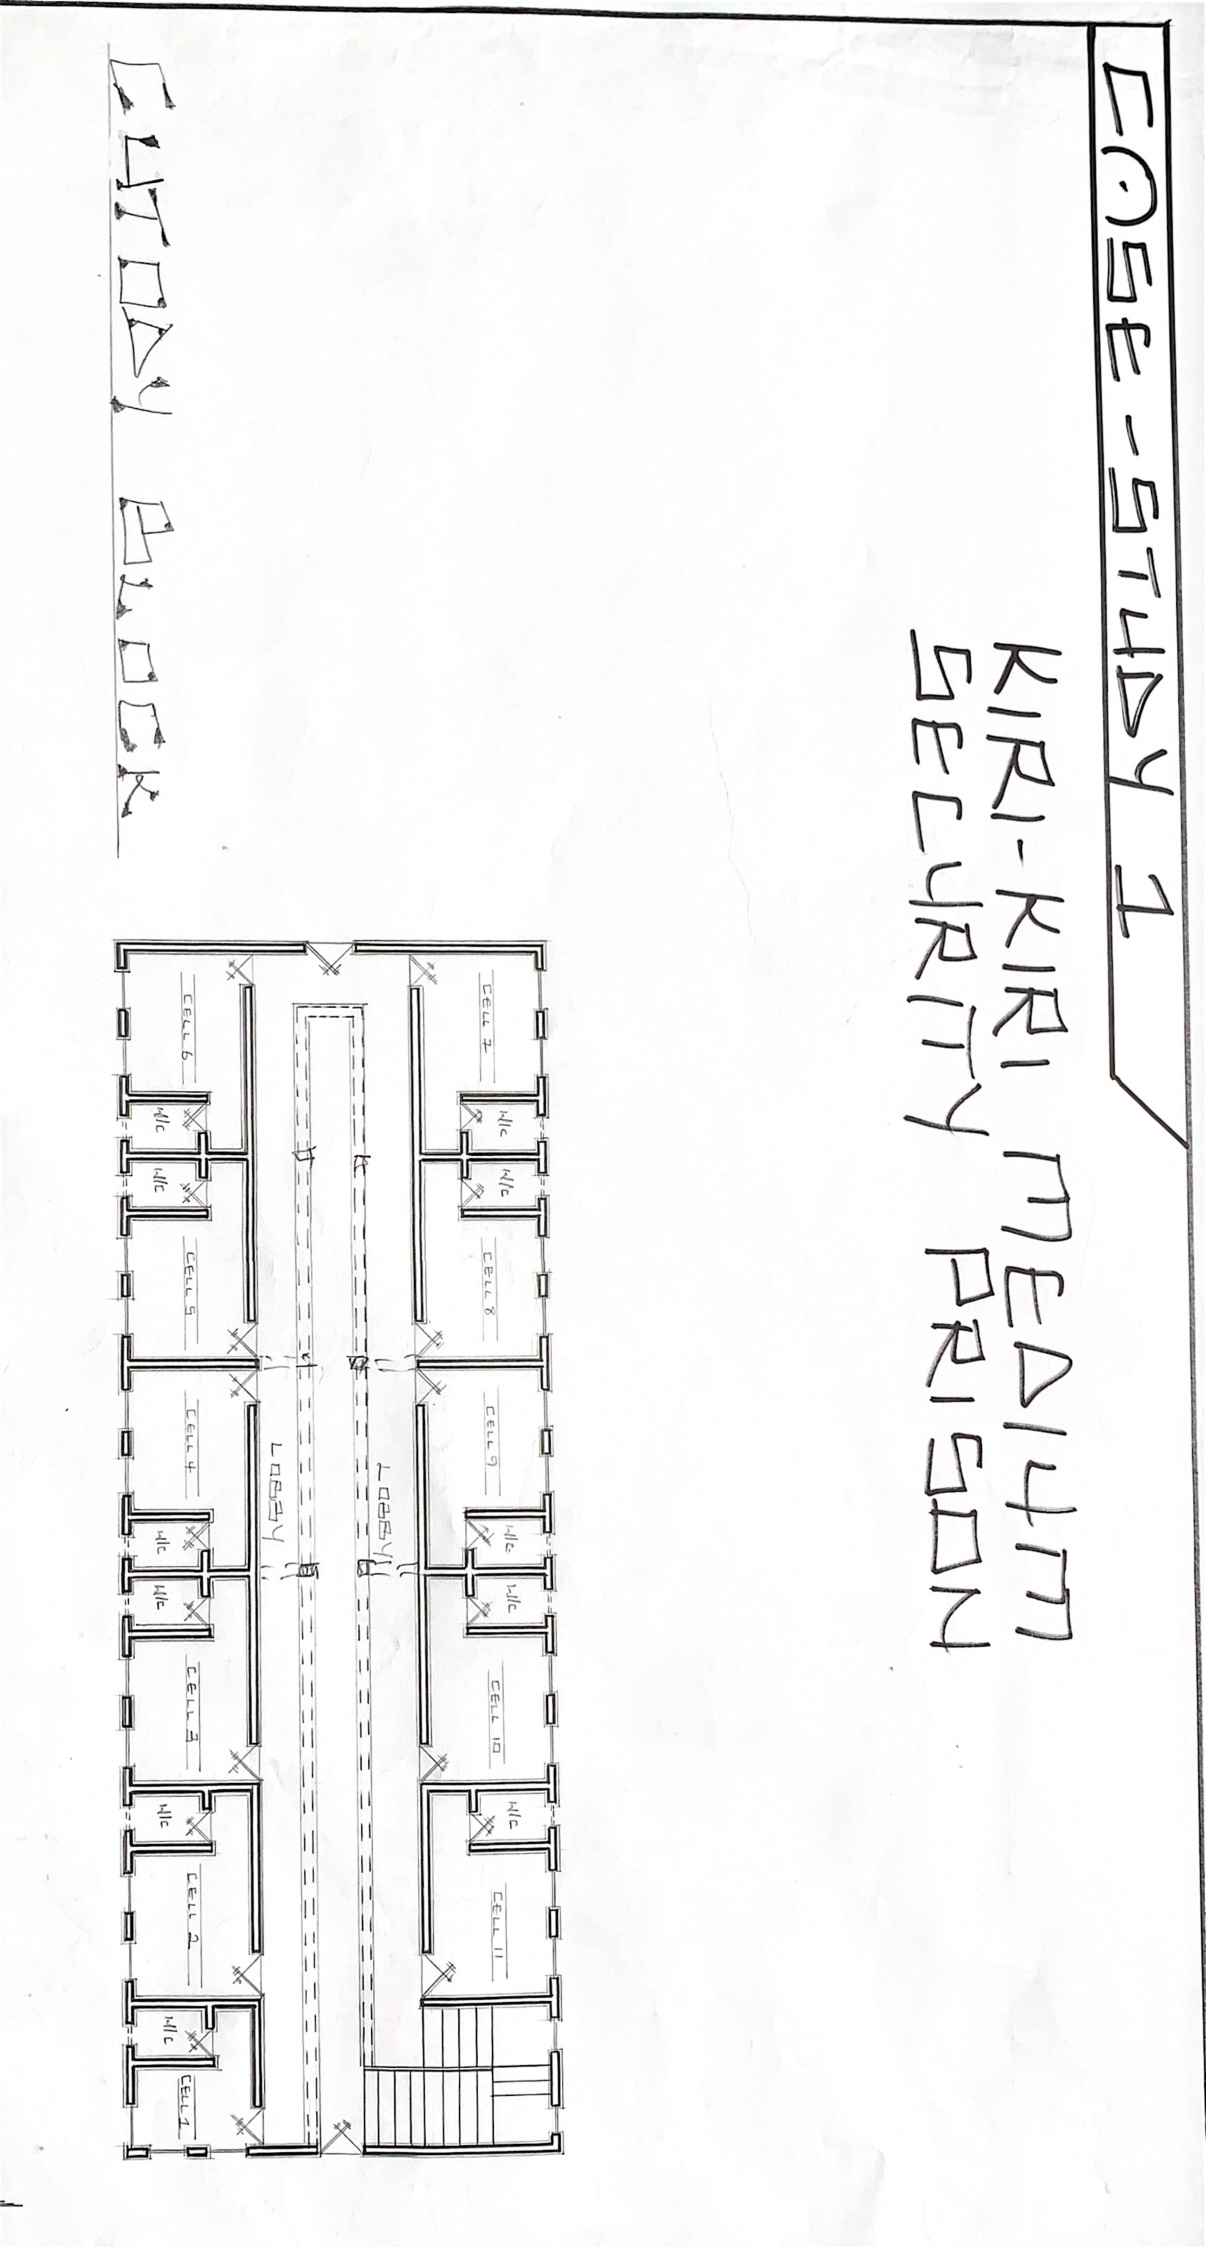 CASE-STUDY 1
KIRI-KIRI MEDIUM
SECURITY PRISON
CELL 7
W/C
W/C
CELL 8
CELL 9
W/C
W/C
CELL 10
W/C
CELL 11
LOBBY
LOBBY
CELL 6
W/C
W/C
CELL 5
CELL 4
W/C
W/C
CELL 3
W/C
CELL 2
W/C
CELL 1
CUTODY BLOCK